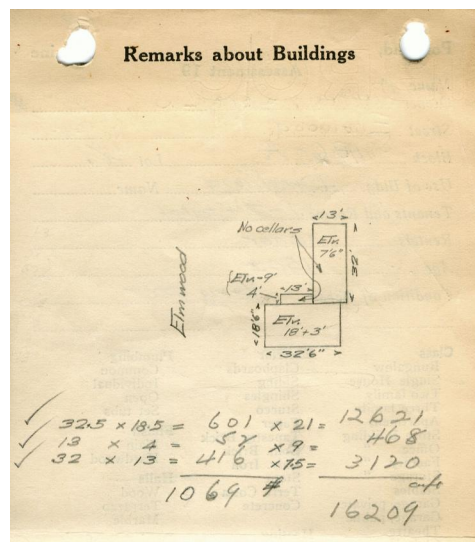 Remarks about Buildings
13'
No cellars
Eln
7'6"
32'
Eln-9'
4'
13'
Elmwood
18'6"
Eln
18'+3'
32'6"
32.5 x 18.5 = 601 x 21 = 12621
13 x 4 = 52 x 9 = 468
32 x 13 = 416 x 7.5 = 3120
1069 #
cuft
16209